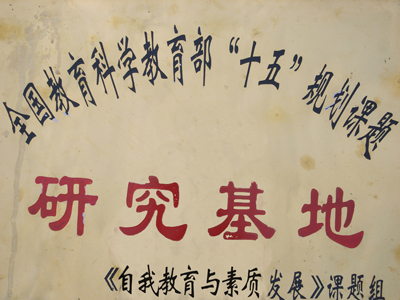 全国教育科学教育部“十五”规划课题
研究基地
《自我教育与素质发展》课题组